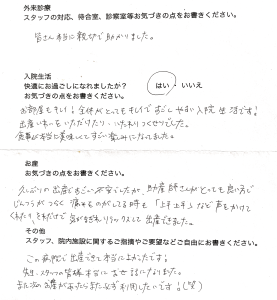 外来診療
スタッフの対応、待合室、診察室等お気づきの点をお書きください。
皆さん本当に親切で助かりました。
入院生活
快適にお過ごしになれましたか？ はい ・ いいえ
お気づきの点をお書きください。
お部屋もキレイ！全体がとってもキレイですごしやすい入院生活です！
出産いわいをいただけたり、いたれりつくせりでした。
食事が本当に美味しくてすごい楽しみになってました。
お産
お気づきの点をお書きください。
久しぶりの出産ですごい不安でしたが、助産師さんがとっても良い方で
痛みをのがしてる時も「上手上手」など声をかけて
くれたり、それだけで気がまぎれリラックスして出産できました。
その他
スタッフ、院内施設に関するご指摘やご要望などご自由にお書きください。
この病院で出産できて本当によかったです！
先生、スタッフの皆様本当にお世話になりました。
また次の出産があったらまた必ず利用したいです！(笑)